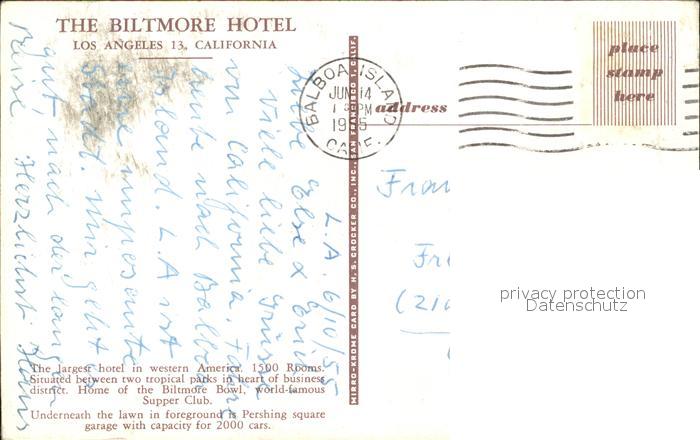 THE BILTMORE HOTEL
LOS ANGELES 13, CALIFORNIA
L.A. 6/10/55
Liebe Else & Erich
Viele liebe Grüsse
von California. Fahre
heute nach Balboa
Island. L.A ist
eine imposante
Stadt. Mir geht es
gut, nach der langen
Reise. Herzlichst Hans
The largest hotel in western America. 1500 Rooms.
Situated between two tropical parks in heart of business
district. Home of the Biltmore Bowl, world-famous
Supper Club.
Underneath the lawn in foreground is Pershing square
garage with capacity for 2000 cars.
MIRRO-KROME CARD BY H. S. CROCKER CO., INC., SAN FRANCISCO 1, CALIF.
BALBOA ISLAND
JUN 14
PM
CALIF.
place
stamp
here
address
(21
privacy protection
Datenschutz